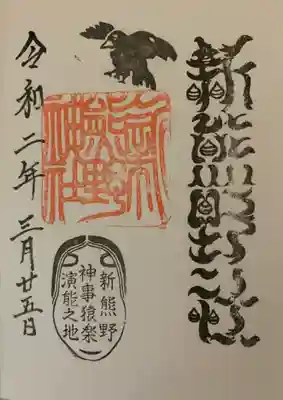 新熊野神社
新熊野
神事猿楽
演能之地
令和二年 三月廿五日